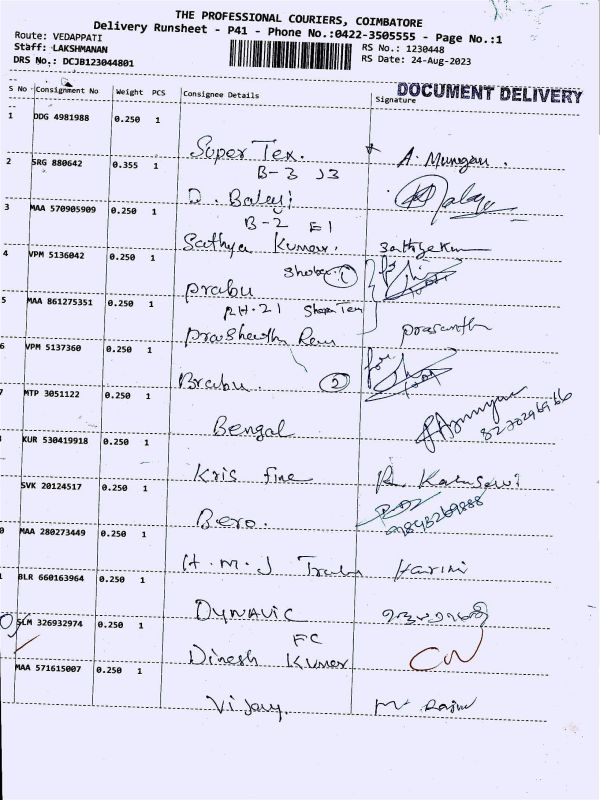 THE PROFESSIONAL COURIERS, COIMBATORE
Delivery Runsheet - P41 - Phone No.:0422-3505555 - Page No.:1
Route: VEDAPPATI
RS No.: 1230448
Staff: LAKSHMANAN
RS Date: 24-Aug-2023
DRS No.: DCJB123044801
DOCUMENT DELIVERY
S No Consignment No Weight PCS Consignee Details Signature
1 DDG 4981988 0.250 1
Super Tex.
B-3 J3
2 SRG 880642 0.355 1
D. Balaji
B-2 E1
3 MAA 570905909 0.250 1
Sathya Kumar.
4 VPM 5136042 0.250 1
1
Prabu
RH.21
5 MAA 861275351 0.250 1
prasanth
6 VPM 5137360 0.250 1
for
Brabu. 2
7 MTP 3051122 0.250 1
Bengal
8270296966
KUR 530419918 0.250 1
Kris fine
SVK 20124517 0.250 1
Bero.
9843269888
0 MAA 280273449 0.250 1
H.M.J Harini
BLR 660163964 0.250 1
DYNAVIC
SLM 326932974 0.250 1
FC
Dinesh Kumar
MAA 571615007 0.250 1
Vijay.